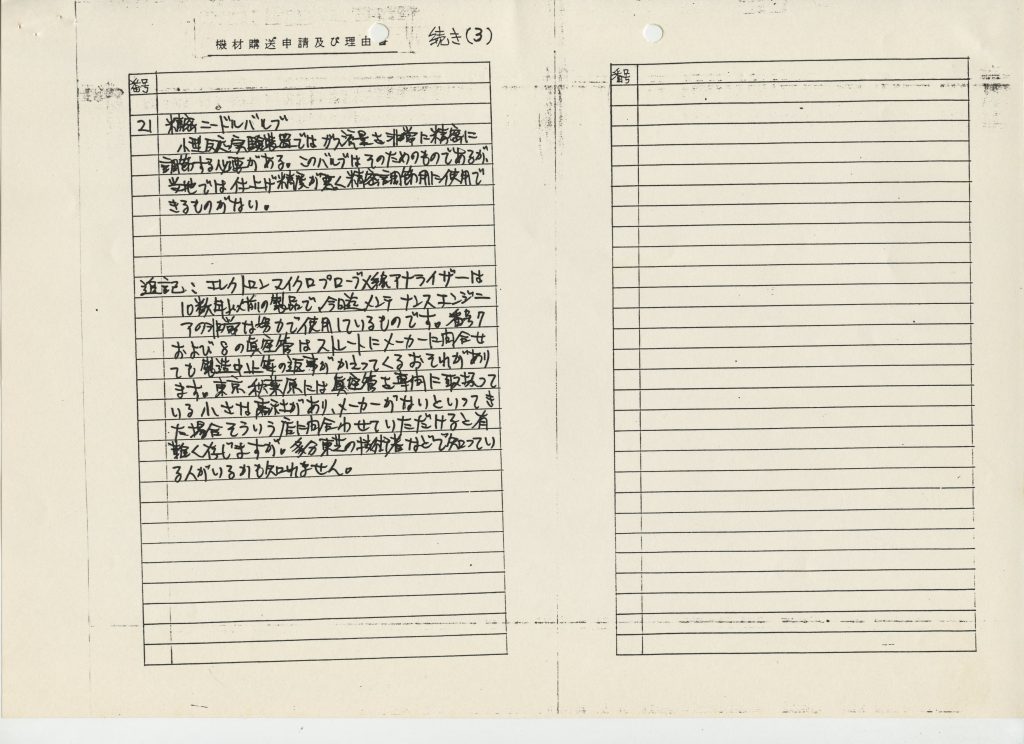 機材購送申請及び理由書 続き(3)
番号
21 精密ニードルバルブ
小型反応実験装置ではガス流量を非常に精密に
調節する必要がある。このバルブはそのためのものであるが、
当地では仕上げ精度が悪く精密調節用に使用で
きるものがない。
追記: エレクトロンマイクロプローブX線アナライザーは
10数年以前の製品で、今日迄メンテナンスエンジニ
アの非常な努力で使用しているものです。番号7
および8の真空管はストレートにメーカーに問合せ
ても製造中止等の返事がかえってくるおそれがあり
ます。東京秋葉原には真空管を専門に取扱って
いる小さな商社があり、メーカーがないといってき
た場合そういう店に問合わせていただけると有
難く存じますが。多分東芝の技術者などで知ってい
る人がいるかも知れません。
番号